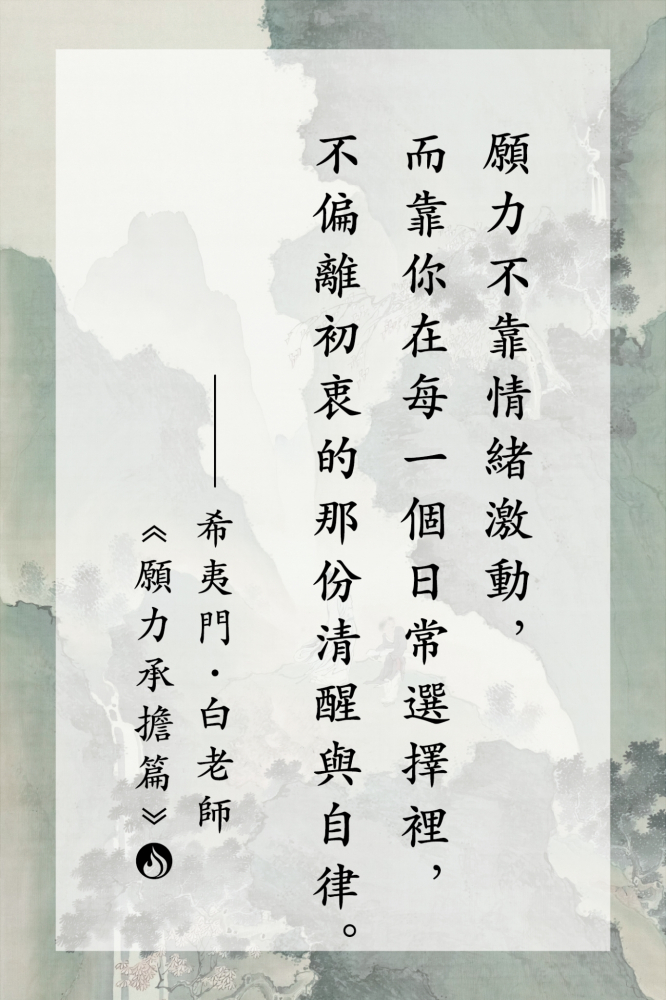 願力不靠情緒激動，
而靠你在每一個日常選擇裡，
不偏離初衷的那份清醒與自律。
——希夷門·白老師
《願力承擔篇》